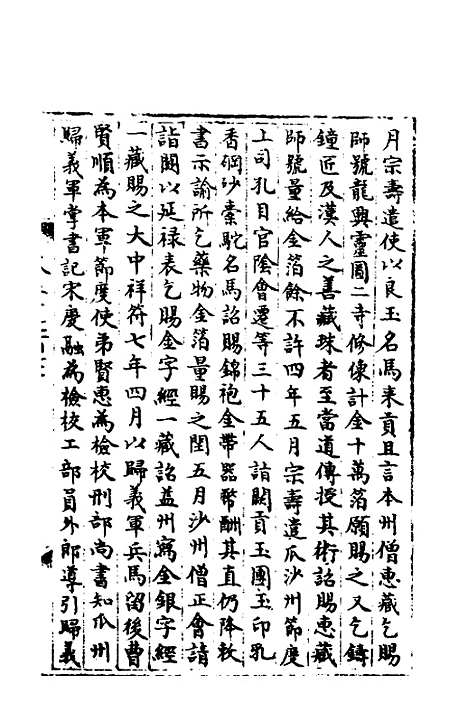 月宗壽遣使以良玉名馬来貢且言本州僧惠藏乞賜
師號龍興靈圖二寺修像計金十萬箔願賜之又乞鑄
鐘匠及漢人之善藏珠者至當道傳授其術詔賜惠藏
師號量給金箔餘不許四年五月宗壽遣瓜沙州節度
上司孔目官陰會遷等三十五人詣闕貢玉團玉印乳
香硇沙橐駝名馬詔賜錦袍金帶器幣酬其直仍降敕
書示諭所乞藥物金箔量賜之閏五月沙州僧正會請
詣闕以延禄表乞賜金字經一藏詔益州寫金銀字經
一藏賜之大中祥符七年四月以歸義軍兵馬留後曹
賢順為本軍節度使弟賢惠為檢校刑部尚書知瓜州
歸義軍掌書記宋慶融為檢校工部員外郎導引歸義